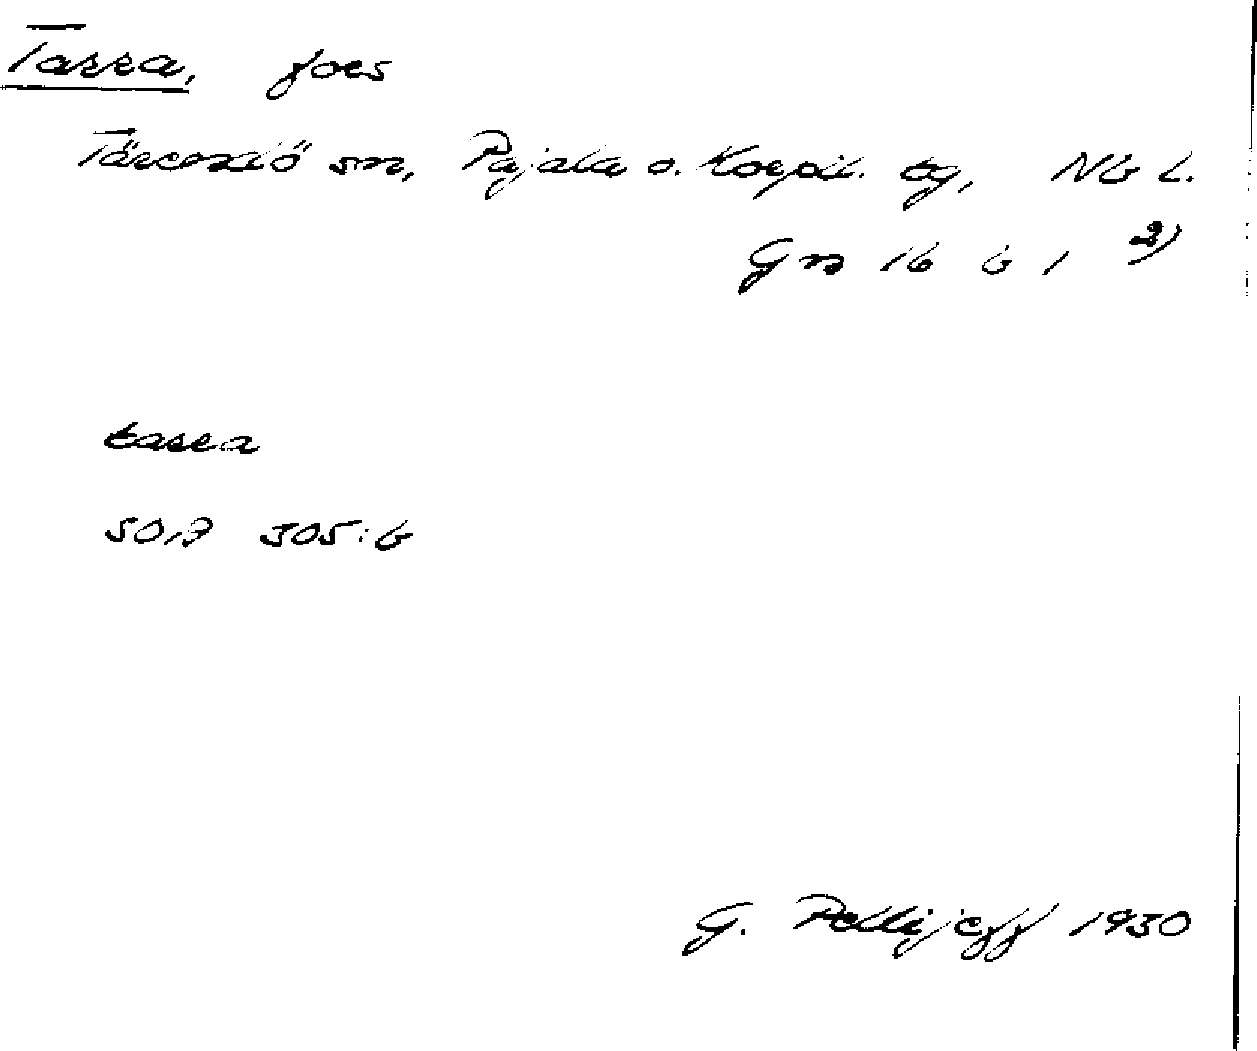 Tarra, fors
Tärendö sn, Pajala o. Korpil. tg, Nb l.
Gn 16 b 1 2)
tarra
305:6
G. Pellijeff 1950